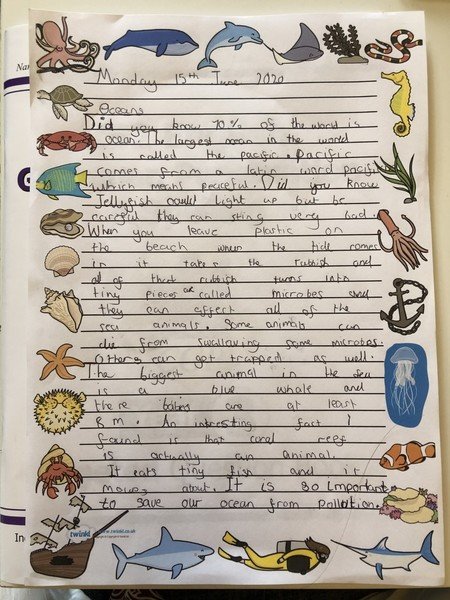 Na
Monday 15th June 2020
Oceans
Did you know 70% of the world is
ocean. The largest ocean in the world
is called the pacific. Pacific
comes from a latin word pacific
which means peaceful. Did you know
Jellyfish could light up but be
careful they can sting very bad.
When you leave plastic on
the beach when the tide comes
in it takes the rubbish and
all of that rubbish turns into
tiny pieces are called microbes and
they can affect all of the
sea animals. Some animals can
die from swallowing some microbes.
Others can get trapped as well.
The biggest animal in the sea
is a blue whale and
there babies are at least
8 m. An interesting fact I
found is that coral reef
is actually an animal.
It eats tiny fish and it
moves about. It is so important
to save our ocean from pollution.
In
twinkl www.twinkl.co.uk